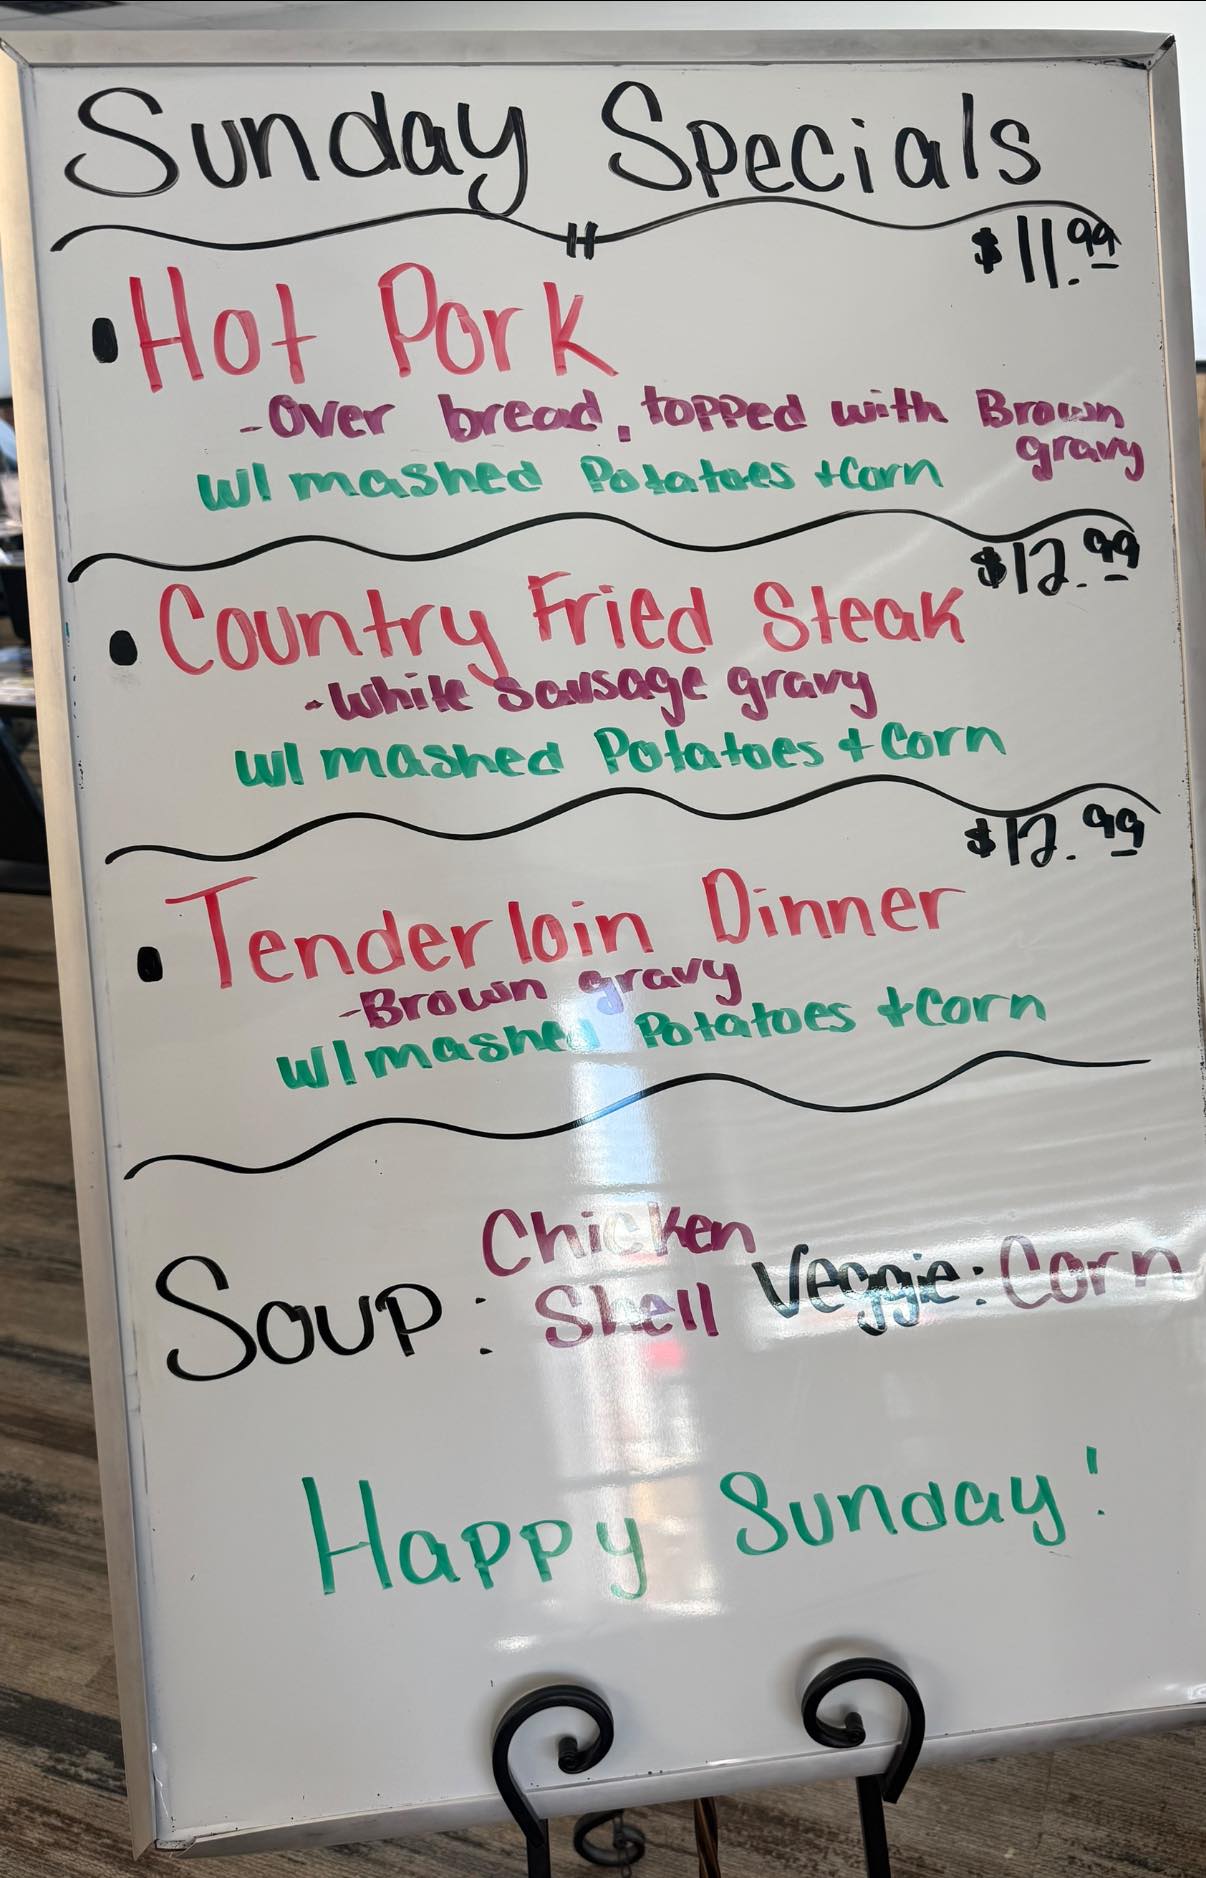 Sunday Specials
$11.99
• Hot Pork
-Over bread, topped with Brown
gravy
w/ mashed Potatoes + Corn
$12.99
• Country Fried Steak
-White Sausage gravy
w/ mashed Potatoes + Corn
$12.99
• Tenderloin Dinner
-Brown gravy
w/ mashed Potatoes + Corn
Soup: Chicken
Shell Veggie: Corn
Happy Sunday!